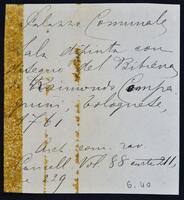 Palazzo Comunale
Sala dipinta con
disegno del Bibiena
da Raimondo Compa
gnini, bolognese,
1761
Arch. com. rav.
Cancell. Vol. 88 carte 211,
e 229
6.40